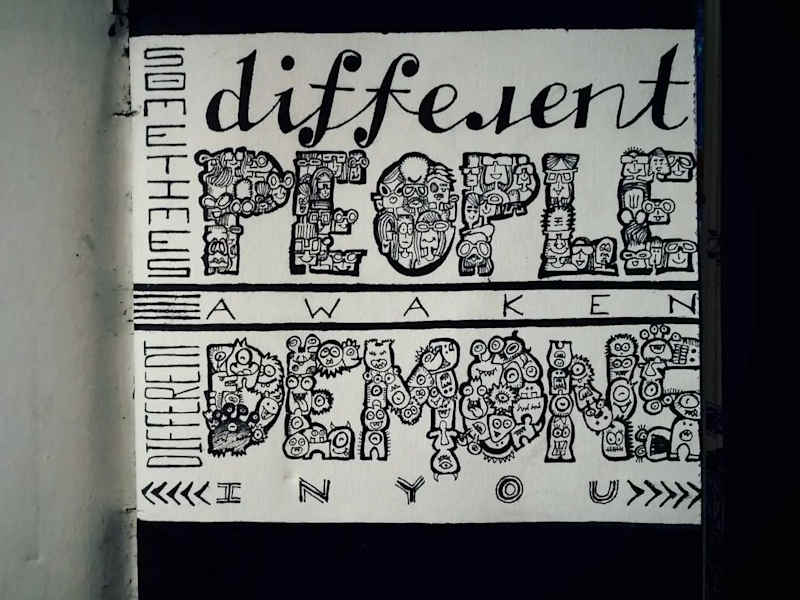 SOMETIMES
different
PEOPLE
AWAKEN
DIFFERENT
DEMONS
IN YOU